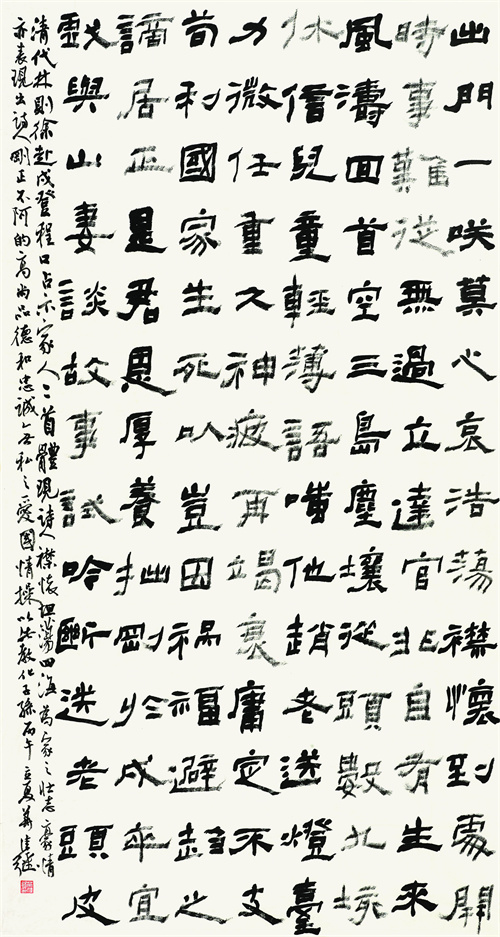 出門一咲莫心哀浩蕩襟懷到處開
時事難從無過立達官非自有生來
風濤回首空三島塵壤從頭數九垓
休信兒童輕薄語嗤他趙老送燈臺
力微任重久神疲再竭衰庸定不支
苟利國家生死以豈因禍福避趨之
謫居正是君恩厚養拙剛於戍卒宜
戲與山妻談故事試吟斷送老頭皮
清代林則徐赴戍登程口占示家人二首體現詩人襟懷坦蕩四海為家之壯志豪情
亦表現出詩人剛正不阿的高尚品德和忠誠無私之愛國情操以此教化子孫丙午立夏